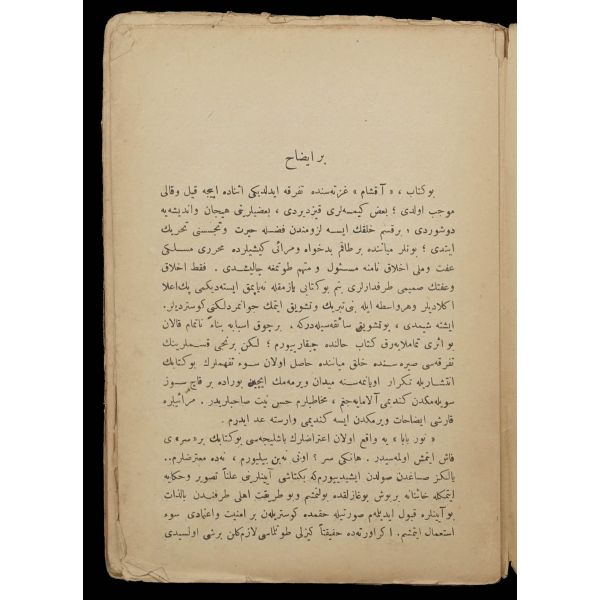 بر ايضاح
بوكتاب ، « آقشام » غزته‌سنده تفرقه ايدلديكى اثناده اپيجه قيل وقالى
موجب اولدى ؛ بعض كيمسه‌لرى قيزديردى ، بعضيلرينى هيجان وانديشه‌يه
دوشوردى ، برقسم خلقك ايسه لزومندن فضله حيرت وتجسسنى تحريك
ايتدى ؛ بونلر مياننده برطاقم بدخواه ومرائى كيشيلرده محررى مسلكى
عفت وملى اخلاق نامنه مسئول و متهم طوتمغه چاليشدى . فقط اخلاق
وعفتك صميمى طرفدارلرى بنم بوكتابى يازمقله نه‌ياپمق ايسته‌ديكمى پك‌اعلا
اكلاديلر وهرواسطه ايله بنى تبريك وتشويق ايتمك جوانمردلكنى كوسترديلر.
ايشته شيمدى ، بوتشويق سائقه‌سيله‌دركه ، برچوق اسبابه بناءً ناتمام قالان
بو اثرى تماملايه‌رق كتاب حالنده چيقاريورم ؛ لكن برنجى قسملرينك
تفرقه‌سى صيره‌سنده خلق مياننده حاصل اولان سوء تفهملرك بوكتابك
انتشاريله تكرار اويانمه‌سنه ميدان ويرمه‌مك ايچين بوراده بر قاچ سوز
سويله‌مكدن كنديمى آلامايه‌جغم ، مخاطبلرم حسن نيت صاحبلريدر . مرائيلره
قارشى ايضاحات ويرمكدن ايسه كنديمى وارسته عد ايدرم .
« نور بابا » يه واقع اولان اعتراضلرك باشليجه‌سى بوكتابك بر « سر » ى
فاش ايتمش اولمه‌سيدر . هانكى سر ؟ اونى نه‌بن بيليورم ، نه‌ده معترضلرم..
يالكز صاغدن صولدن ايشيدييورم‌كه بكتاشى آيينلرينى علناً تصوير وحكايه
ايتمكله خائنانه بريوش بوغازلقده بولنمشم وبو طريقت اهلى طرفندن بالذات
بوآيينلره قبول ايديله‌م صورتيله حقمده كوستريلن بر امنيت واعتمادى سوء
استعمال ايتمشم. اكر اورته‌ده حقيقتاً كيزلى طوتلماسى لازم‌كلن برشى اولسيدى